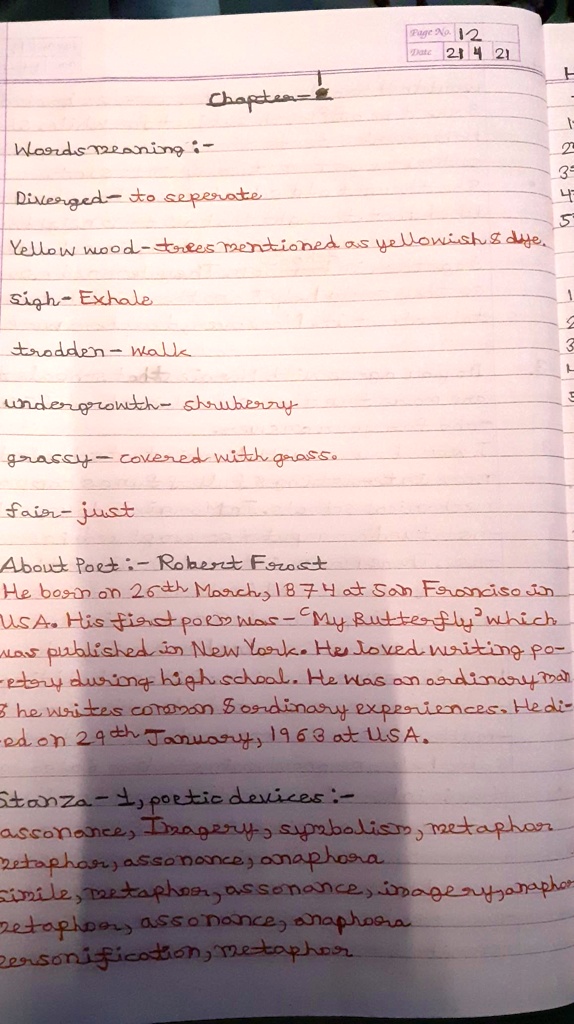 Page No. 12
Date 21 4 21
1
Chapter-
Words meaning :-
Diverged- to seperate
Yellow wood- trees mentioned as yellowish & dye.
sigh- Exhale
trodden- walk
undergrowth- shruberry
grassy- covered with grass.
fair- just
About Poet :- Robert Frost
He born on 26th March, 1874 at San Franciso in
USA. His first poem was- "My Butterfly" which
was published in New York. He loved writing po-
etory during high school. He was an ordinary man
& he writes common & ordinary experiences. He di-
ed on 29th January, 1963 at USA.
Stanza- 1, poetic devices :-
assonance, Imagery, symbolism, metaphor
metaphor, assonance, anaphora
simile, metaphor, assonance, imagery, anaphor
metaphor, assonance, anaphora
personification, metaphor